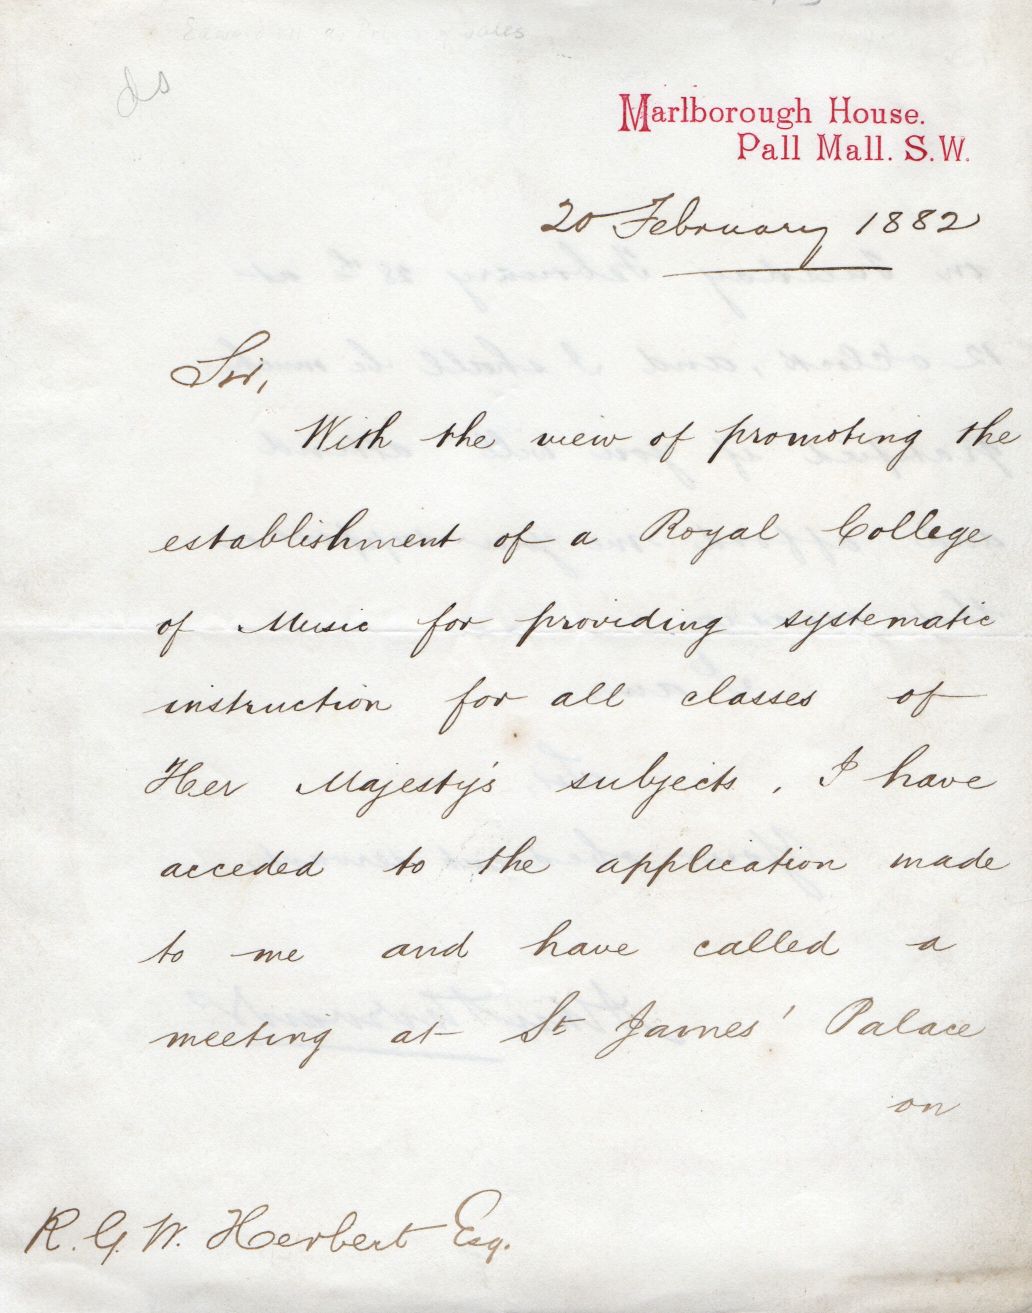 Edward VII as Prince of Wales
ds
Marlborough House.
Pall Mall. S.W.
20 February 1882
Sir,
With the view of promoting the
establishment of a Royal College
of Music for providing systematic
instruction for all classes of
Her Majesty's subjects, I have
acceded to the application made
to me and have called a
meeting at St James' Palace
on
R. G. W. Herbert Esq.